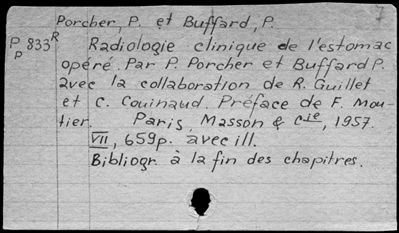 7
Porcher, P. et Buffard, P.
P 833 R Radiologie clinique de l'estomac
P opéré. Par P. Porcher et Buffard P.
avec la collaboration de R. Guillet
et C. Couinaud. Préface de F. Mou-
tier. Paris, Masson & Cie, 1957.
VII, 659p. avec ill.
Bibliogr. à la fin des chapitres.